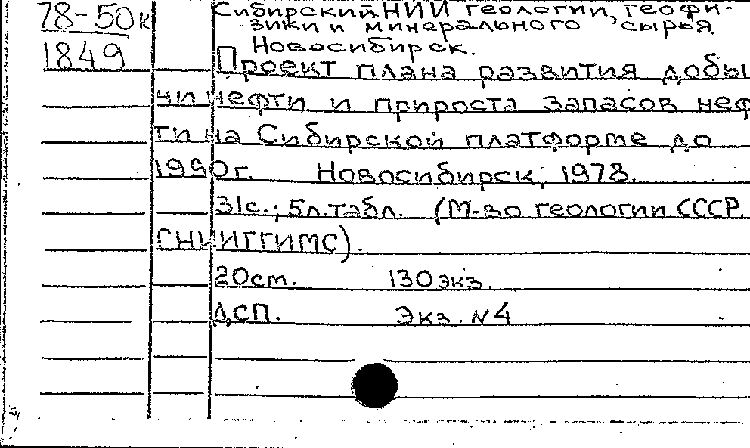 78-50к
1849
Сибирский НИИ геологии, геофи-
зики и минерального сырья.
Новосибирск.
Проект плана развития добы
чи нефти и прироста запасов неф
ти на Сибирской платформе до
1990г. Новосибирск, 1978.
31с.; 5л.табл. (М-во геологии СССР.
СНИИГГИМС).
20см. 130экз.
ДСП. Экз. №4